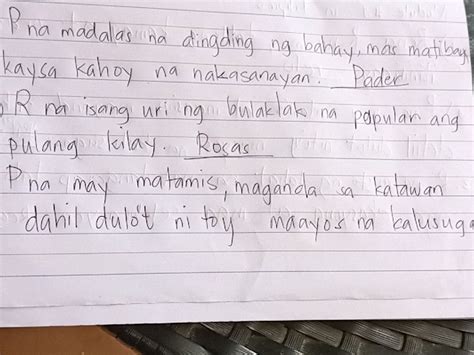 P na madalas na dingding ng bahay, mas matibay
kaysa kahoy na nakasanayan. Pader
R na isang uri ng bulaklak na popular ang
pulang kilay. Rosas
P na may matamis, maganda sa katawan
dahil dulo't ni toy maayos na kalusuga